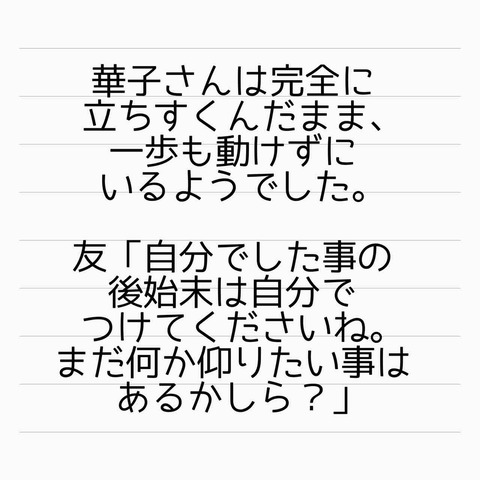 華子さんは完全に
立ちすくんだまま、
一歩も動けずに
いるようでした。
友「自分でした事の
後始末は自分で
つけてくださいね。
まだ何か仰りたい事は
あるかしら？」